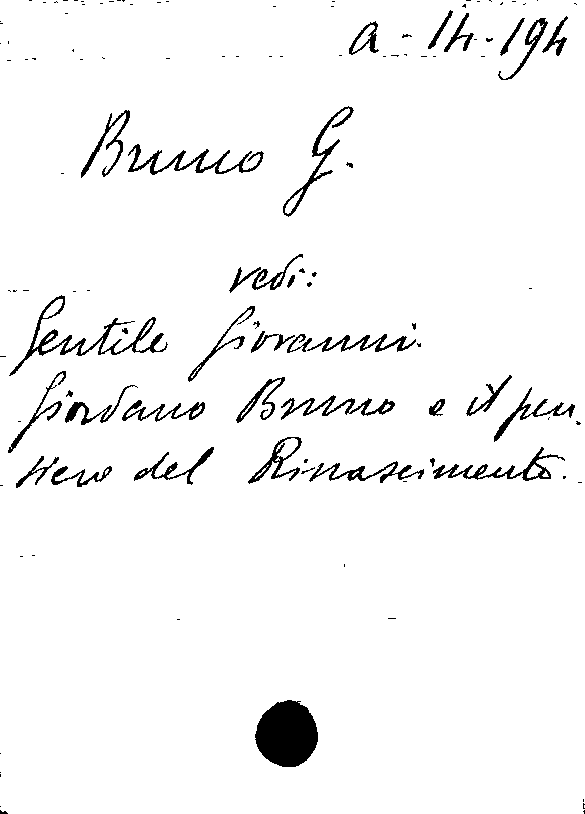 a-14-194
Bruno G.
vedi:
Gentile Giovanni.
Giordano Bruno e il pen-
siero del Rinascimento.